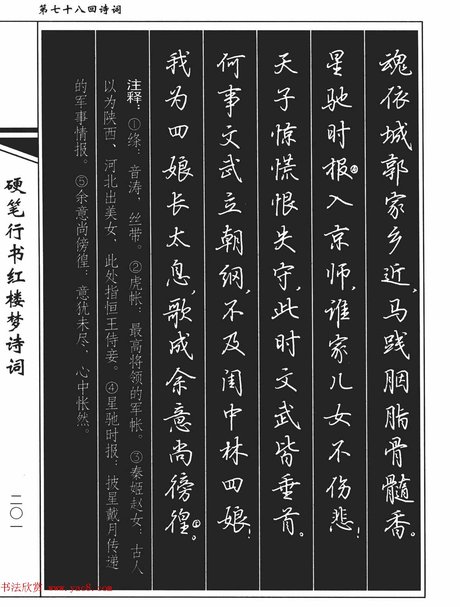 第七十八回诗词
魂依城郭家乡近，马践胭脂骨髓香。
星驰时报④入京师，谁家儿女不伤悲！
天子惊慌恨失守，此时文武皆垂首。
何事文武立朝纲，不及闺中林四娘！
我为四娘长太息，歌成余意尚傍徨⑤。
注释：①绦：音涛，丝带。②虎帐：最高将领的军帐。③秦姬赵女：古人
以为陕西、河北出美女，此处指恒王侍妾。④星驰时报：披星戴月传递
的军事情报。⑤余意尚傍徨：意犹未尽、心中怅然。
硬笔行书红楼梦诗词
二〇一
书法欣赏 www.yac8.com